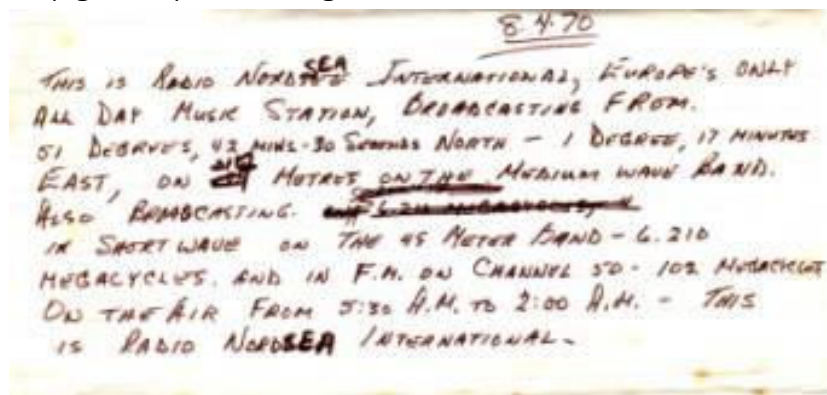 8.4.70
THIS IS RADIO NORDSEA INTERNATIONAL, EUROPE'S ONLY
ALL DAY MUSIC STATION, BROADCASTING FROM.
51 DEGREES, 43 MINS-30 SECONDS NORTH - 1 DEGREE, 17 MINUTES
EAST, ON METRES ON THE MEDIUM WAVE BAND.
ALSO BROADCASTING.
IN SHORT WAVE ON THE 49 METER BAND - 6.210
MEGACYCLES. AND IN F.M. ON CHANNEL 50 - 102 MEGACYCLES
ON THE AIR FROM 5:30 A.M. TO 2:00 A.M. - THIS
IS RADIO NORDSEA INTERNATIONAL -